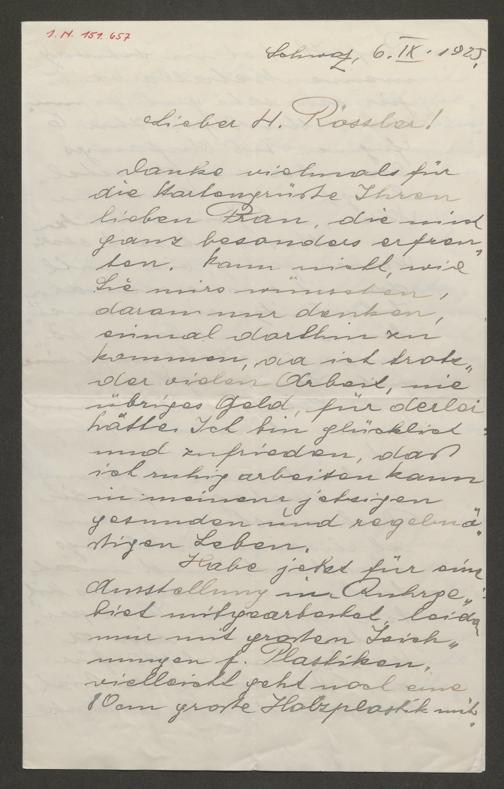 I. N. 151.657
Schwaz, 6. IX. 1925.
Lieber H. Rössler!
Danke vielmals für
die Kartengrüsse Ihren
lieben Frau, die mich
ganz besonders erfreu„
ten. Kann nicht, wie
Sie mirs wünschen,
daran nur denken,
einmal dorthin zu
kommen, da ich trotz„
der vielen Arbeit, nie
übriges Geld, für derlei
hätte. Ich bin glücklich
und zufrieden, dass
ich ruhig arbeiten kann
in meinem jetzigen
gesunden und regelmä„
ssigen Leben.
Habe jetzt für eine
Ausstellung im Ruhrge„
biet mitgearbeitet, leider
nur mit grossen Zeich„
nungen f. Plastiken,
vielleicht geht noch eine
80cm grosse Holzplastik mit.